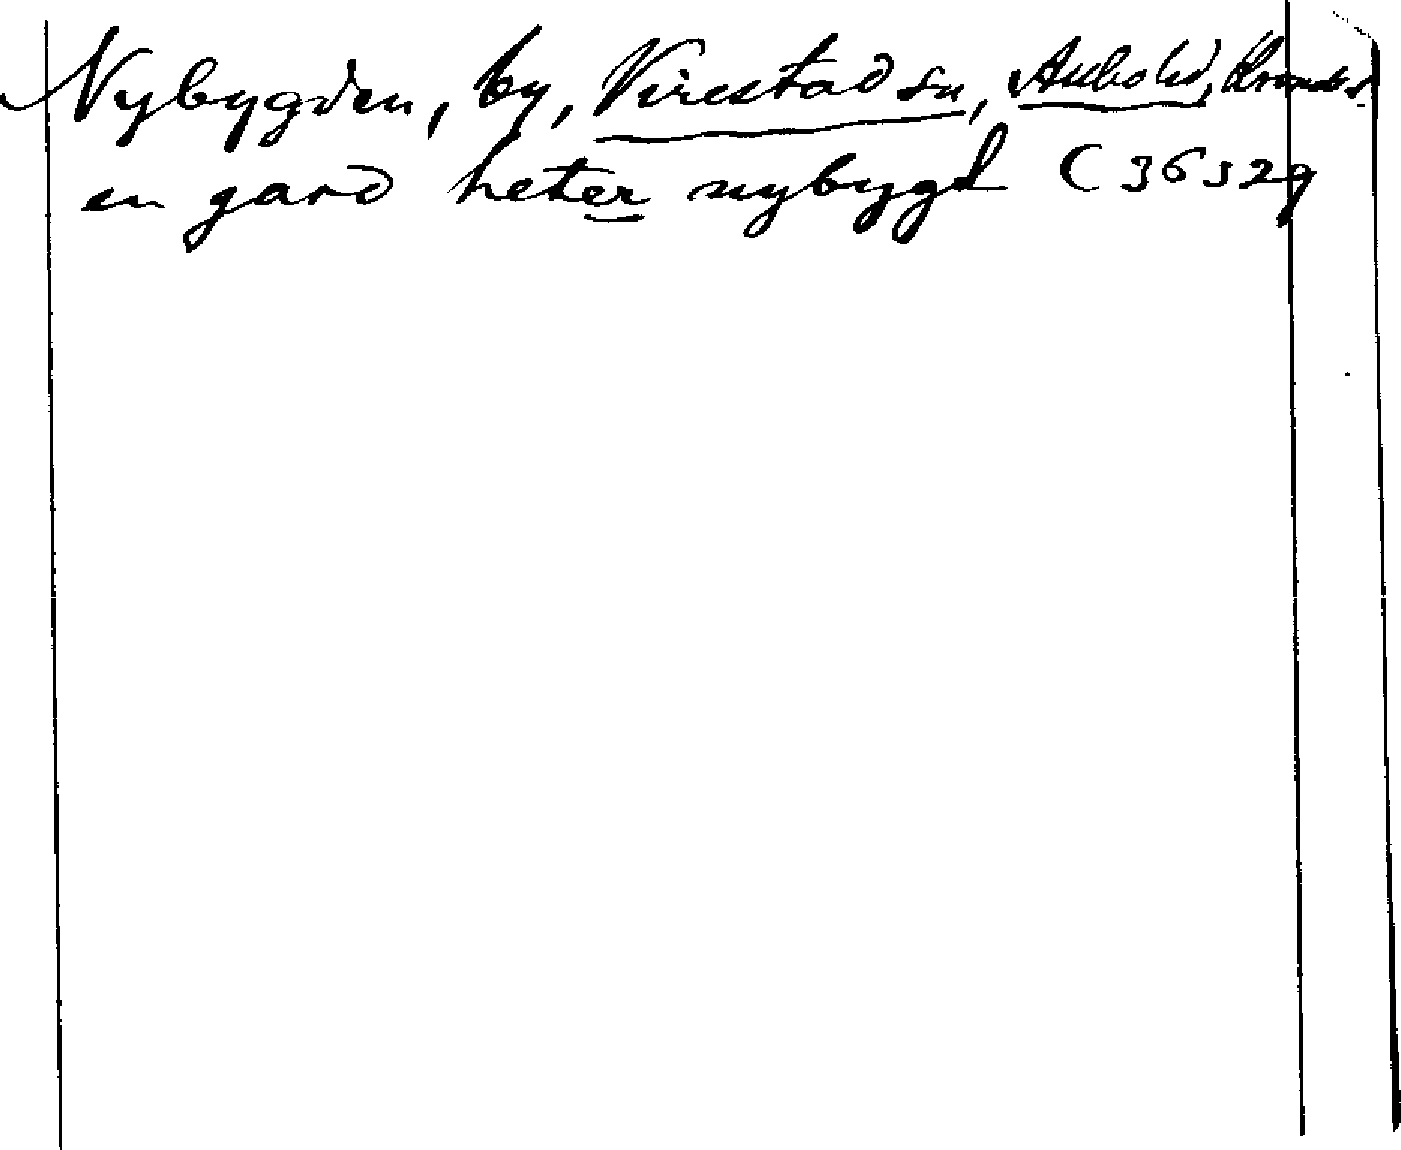 Nybygden, by, Virestad sn, Allbo hd, Kronob. l.
en gard heter nybygd C 36 s 29